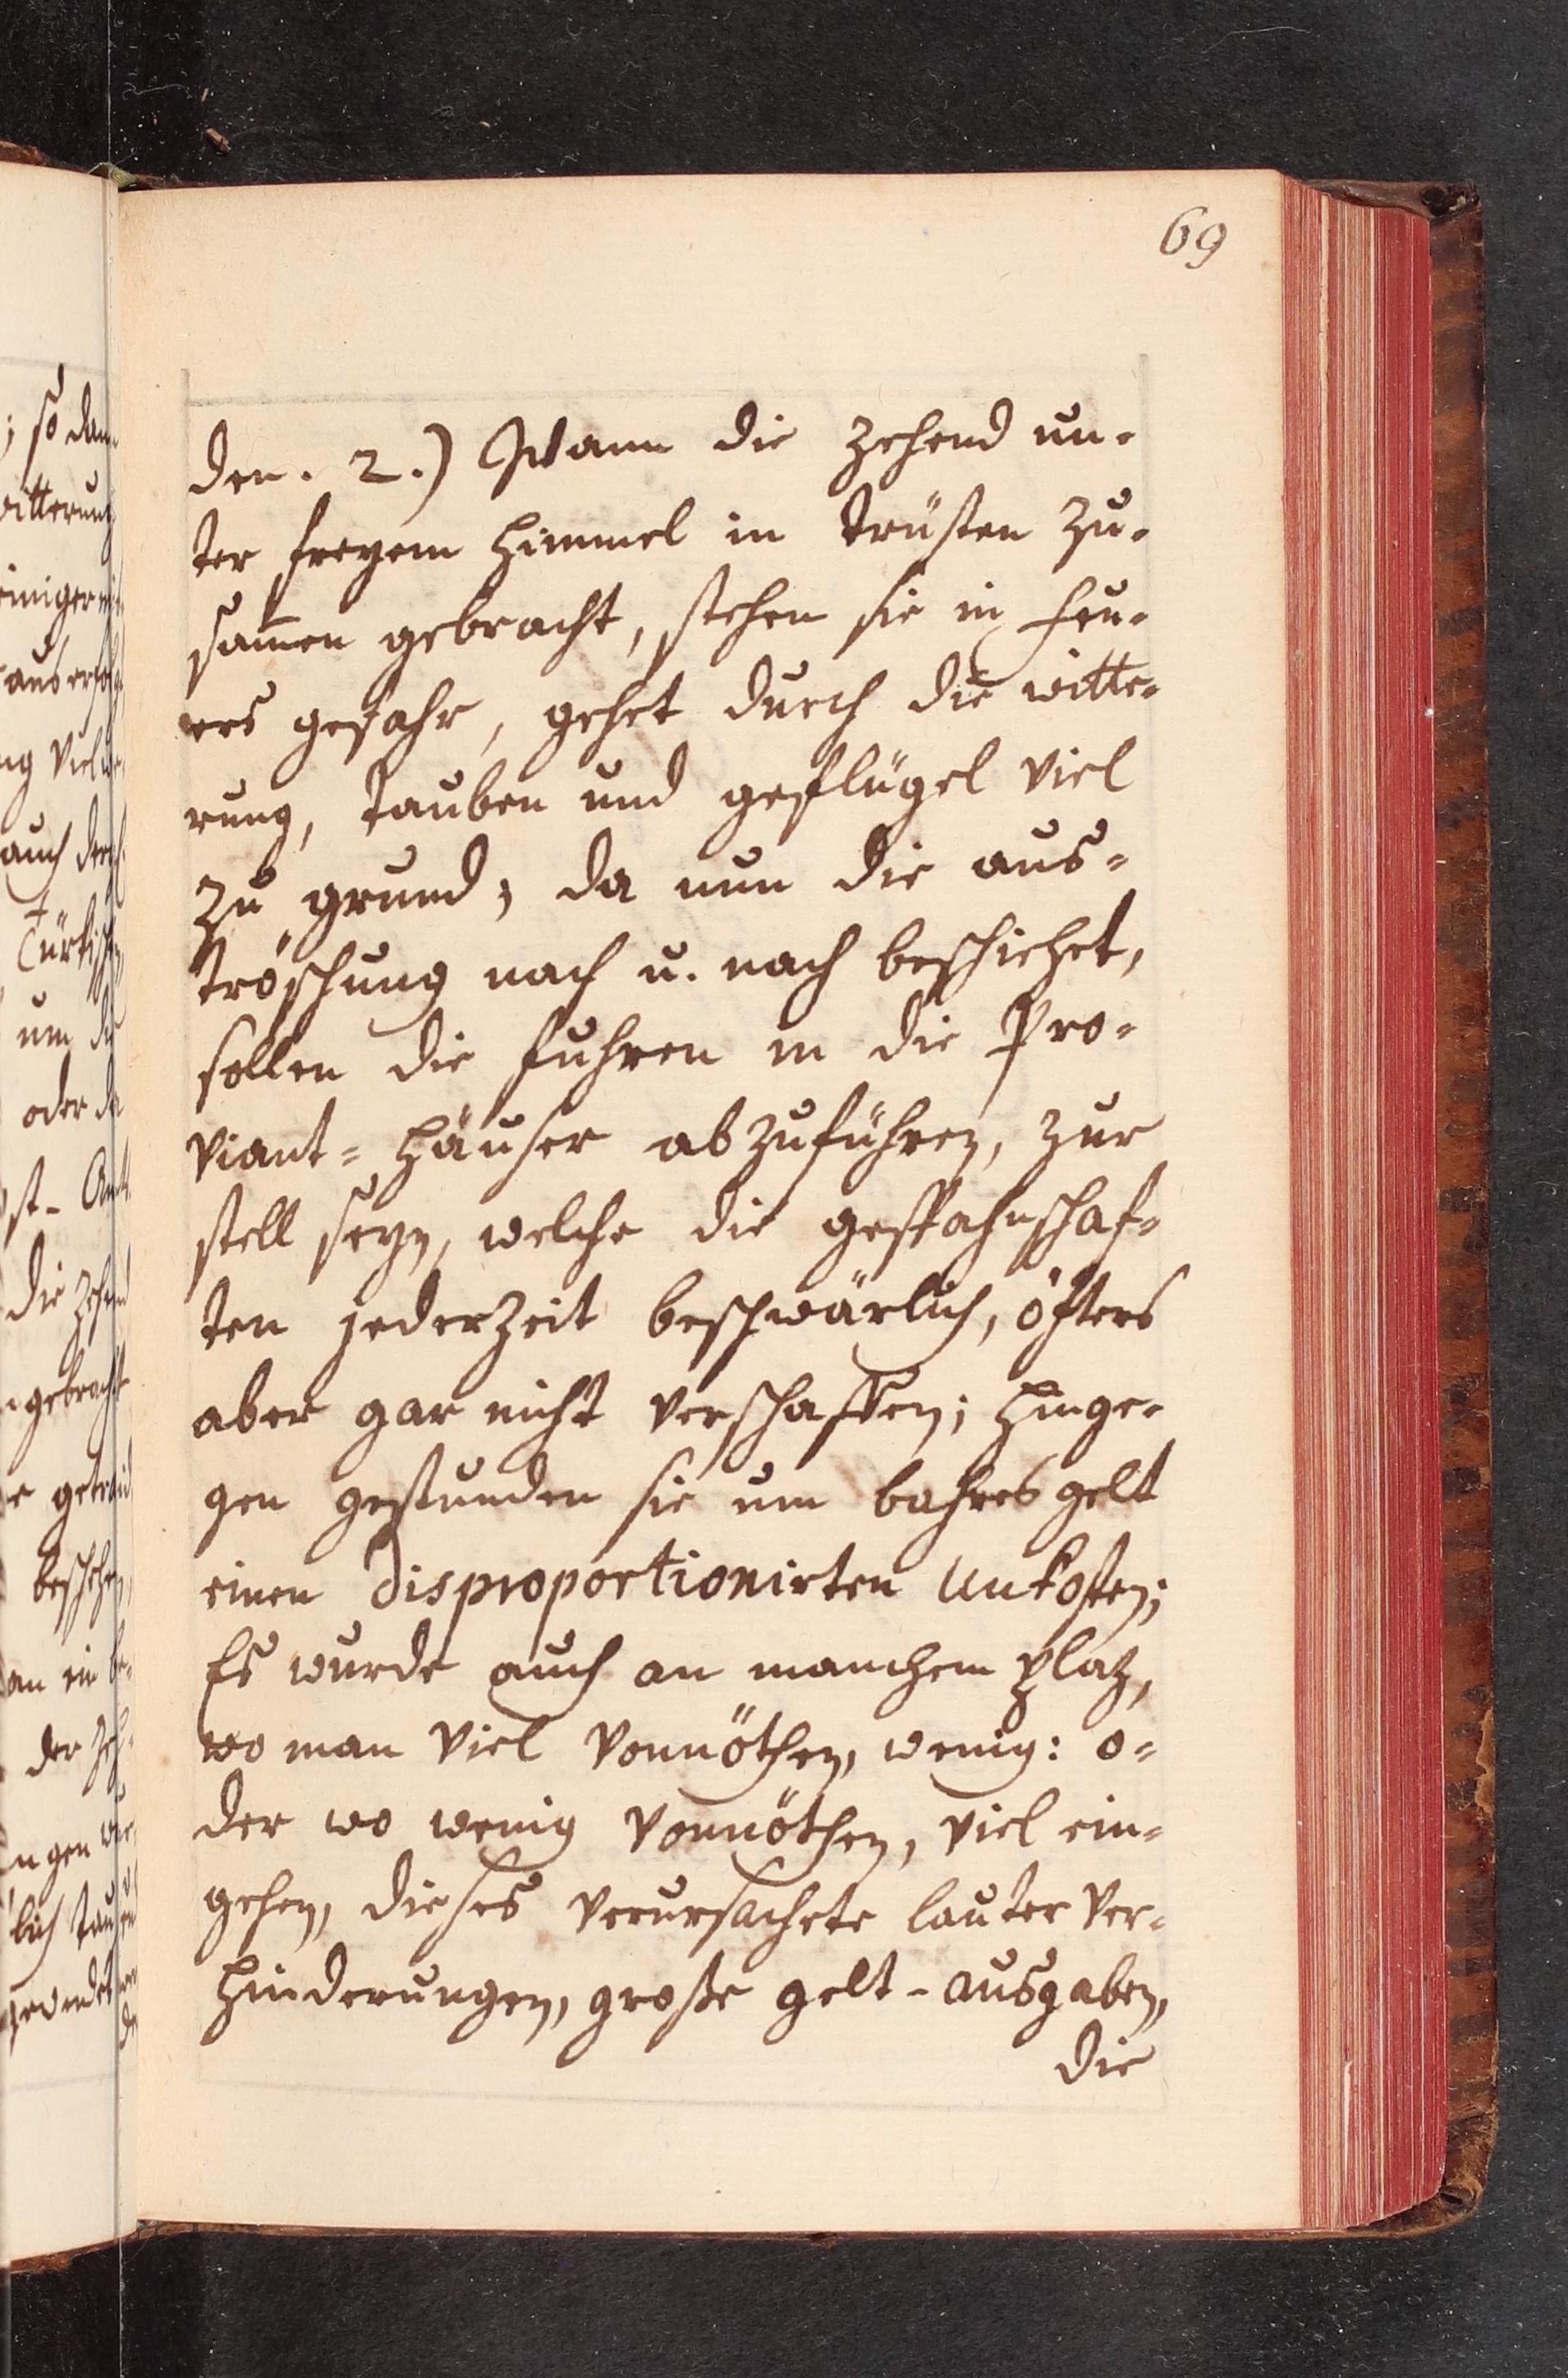 69
den. 2.) Wann die zehend un-
ter freyem himmel in trüsten zu-
sam̅en gebracht, stehen sie in feu-
ers gefahr, gehet durch die witte-
rung, tauben und geflügel viel
zu grund; da nun die aus-
tröschung nach u. nach beschiehet,
sollen die fuhren in die Pro-
viant- häuser abzuführen, zur
stell seyn, welche die gespahnschaf-
ten jederzeit beschwärlich, öfters
aber gar nicht verschaffen; hinge-
gen gestunden sie um bahres gelt
einen disproportionirten Unkosten;
Es wurde auch an manchem plaz,
wo man viel vonnöthen, wenig: o-
der wo wenig vonnöthen, viel ein-
gehen, dieses verursachete lauter ver-
hinderungen, große gelt-ausgaben,
die